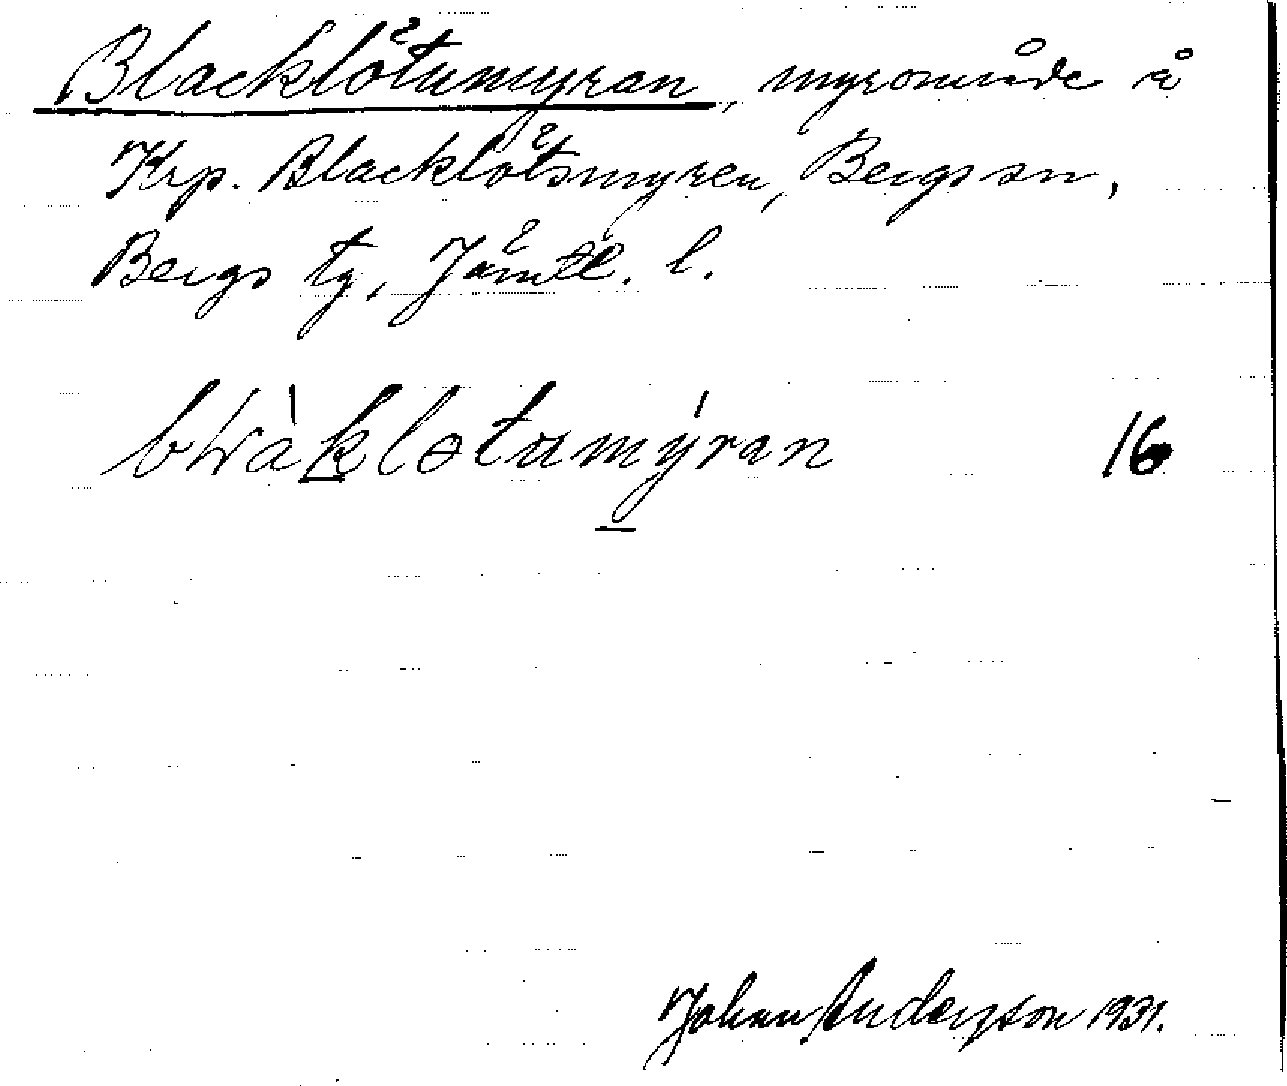 Blacklötumyran, myrområde å
Krp. Blacklötsmyren, Bergs sn,
Bergs tg, Jämtl. l.
16
Johan Anderzson 1931.